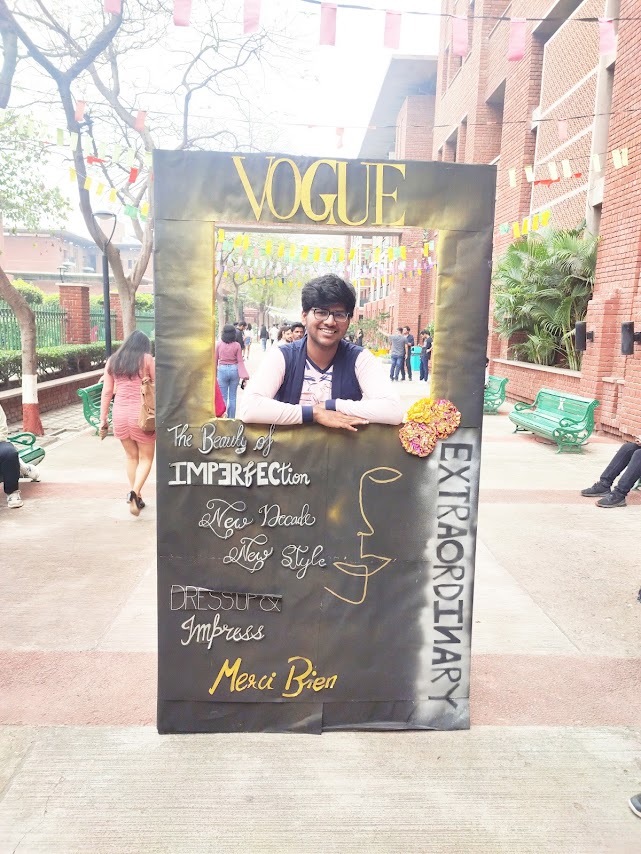 VOGUE
The Beauty of
IMPERFECtion
New Decade
New Style
DRESSUP &
Impress
Merci Bien
EXTRAORDINARY